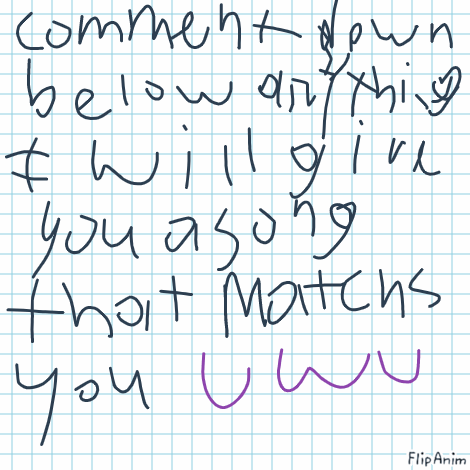 comment down
below anything
I will give
you a song
that Matchs
you UwU
FlipAnim